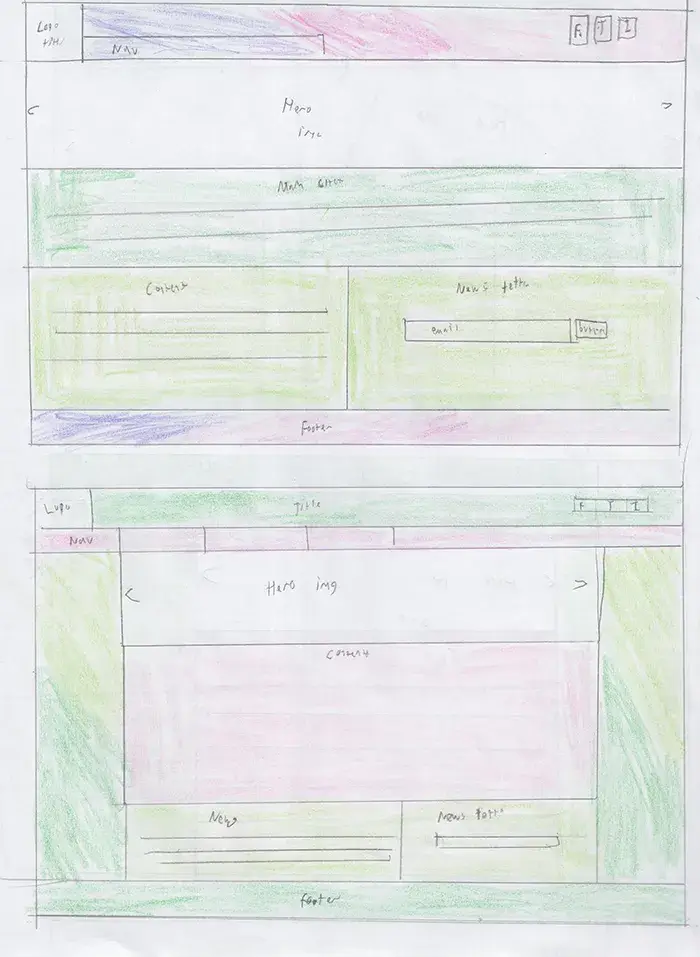 Logo
F T I
Nav
Hero
img
Main
Content
News
email
button
Footer
Logo
Title
F T I
Nav
Hero img
Content
News
News
Footer